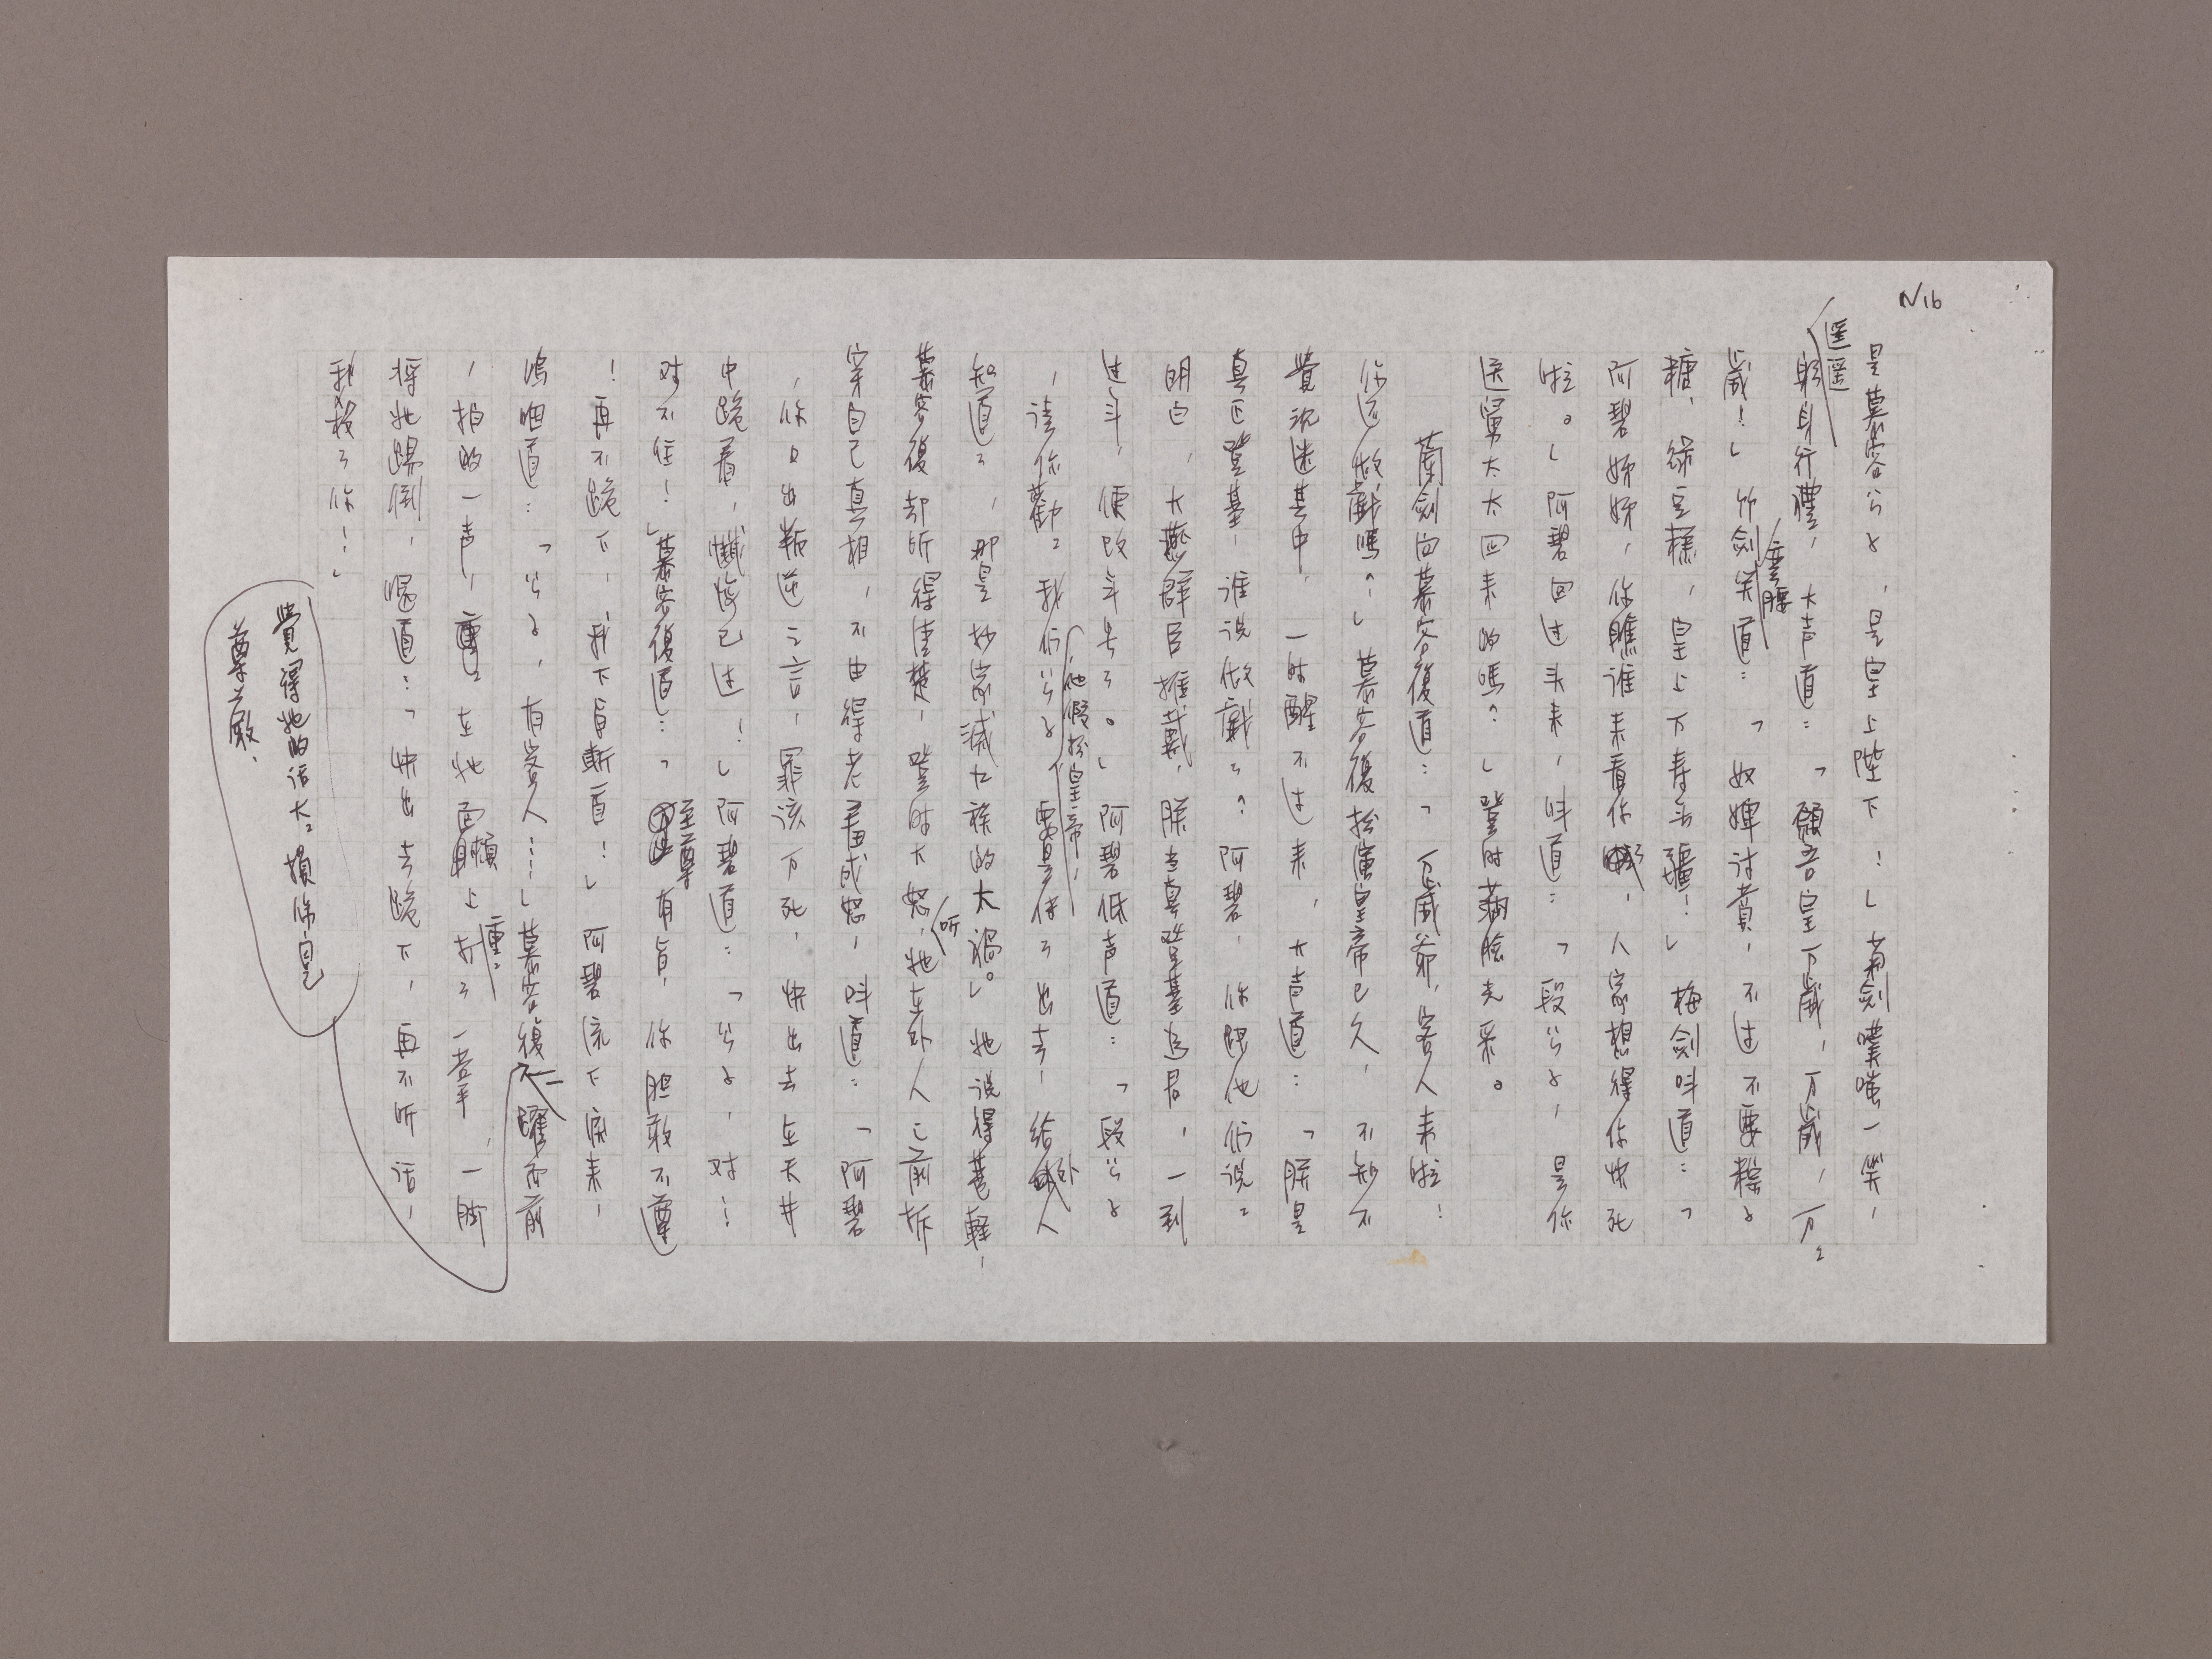 N16
是慕容公子，是皇上陛下！」菊劍噗嗤一笑，
遙遙
躬身行禮，大声道：「願吾皇万歲，万歲，万万
歲！」竹劍笑道：「奴婢討賞，不过不要粽子
糖、綠豆糕，皇上万寿无疆！」梅劍叫道：「
阿碧姊姊，你瞧谁来看你，人家想得你快死
啦。」阿碧回过头来，叫道：「段公子，是你
送舅太太回来的嗎？」登时滿臉光采。
蘭劍向慕容復道：「万歲爺，客人来啦！
你还做戲嗎？」慕容復扮演皇帝已久，不知不
覺沉迷其中，一时醒不过来，大声道：「朕是
真正登基，谁说做戲了？阿碧，你跟他们说
明白，大燕群臣推戴，朕立真登基為君，一到
过年，便改年号了。」阿碧低声道：「段公子
，請你勸勸我们公子，他假扮皇帝，要是传了出去，給外人
知道了，那是抄家滅九族的大禍。」她说得甚輕，
慕容復却听得清楚，登时大怒，听她在外人之前拆
穿自己真相，不由得老羞成怒，叫道：「阿碧
，你口出叛逆之言，罪该万死，快出去在天井
中跪着，懺悔己过！」阿碧道：「公子，对…
对不住！」慕容復道：「至尊有旨，你胆敢不遵
！再不跪下，我下旨斬首！」阿碧流下淚来，
嗚咽道：「公子，有客人……」慕容復躍而前
，拍的一声，重重在她面頰上打了一掌，一脚
将她踢倒，喝道：「快出去跪下，再不听话，
我殺了你！」
覺得她的话大大損傷自己
尊嚴，